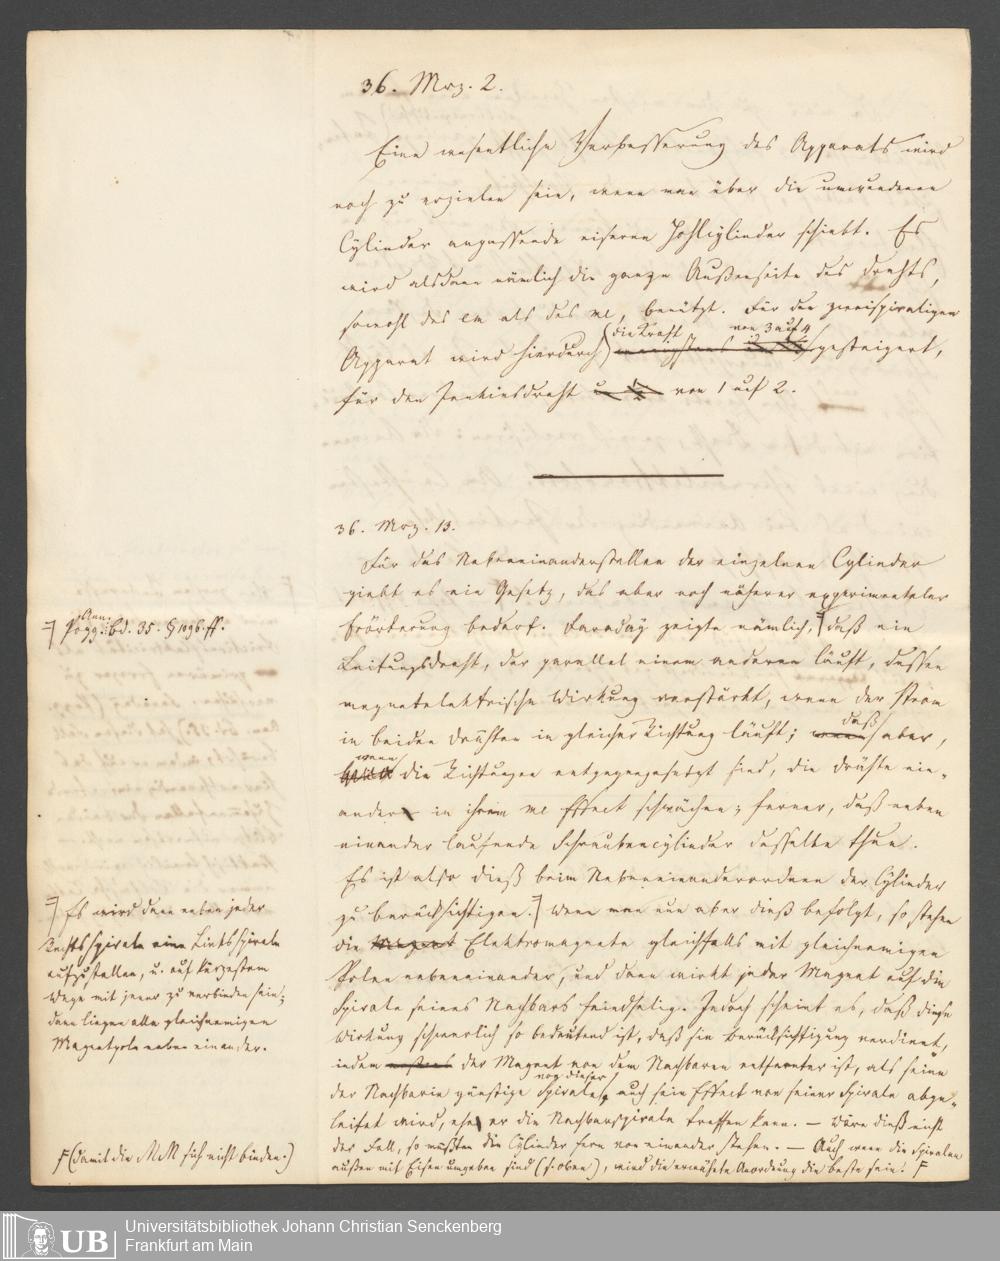 36. Mrz. 2.
Eine wesentliche Verbesserung des Apparats wird
noch zu erzielen sein, wenn man über die umwundenen
Cylinder anpassende eiserne Hohlcylinder schiebt. Es
wird alsdann nämlich die ganze Außenseite des Drahts,
sowohl des em als des me, benützt. Für den zweispiraligen
die Kraft von 3 auf 4
Apparat wird hierdurch gesteigert,
für den Jenkinsdraht von 1 auf 2.
36. Mrz. 13.
Für das Nebeneinanderstellen der einzelnen Cylinder
giebt es ein Gesetz, das aber noch näherer experimenteler
Erörterung bedarf. Faraday zeigte nämlich, daß ein
Leitungsdraht, der parallel einem anderen läuft, dessen
magnetelektrische Wirkung verstärkt, wenn der Strom
in beiden Drähten in gleicher Richtung läuft; daß aber,
wenn die Richtungen entgegengesetzt sind, die Drähte ein-
ander in ihrem me Effect schwächen; ferner, daß neben
einander laufende Schraubencylinder dasselbe thun.
Es ist also dieß beim Nebeneinanderordnen der Cylinder
zu berücksichtigen. Wenn man nun aber dieß befolgt, so stehen
die Elektromagnete gleichfalls mit gleichnamigen
Polen nebeneinander, und dann wirkt jeder Magnet auf die
Spirale seines Nachbars feindselig. Jedoch scheint es, daß diese
Wirkung schwerlich so bedeutend ist, daß sie Berücksichtigung verdient,
indem der Magnet von dem Nachbaren entfernter ist, als seine
der Nachbarin günstige Spirale, auch sein Effect von seiner Spirale abge-
leitet wird, ehe er die Nachbarspirale treffen kann. — Wäre dieß nicht
der Fall, so müßten die Cylinder fern von einander stehen. — Auch wenn die Spiralen
außen mit Eisen umgeben sind (s. oben), wird die erwähnte Anordnung die beste sein. F
Pogg. Ann. Bd. 35. § 1096. ff.
Es wird dann neben jeder
Rechtsspirale eine Linksspirale
aufzustellen, u. auf kürzestem
Wege mit jener zu verbinden sein;
dann liegen alle gleichnamigen
Magnetpole neben einander.
F (damit die MM sich nicht binden.)
Universitätsbibliothek Johann Christian Senckenberg
Frankfurt am Main
UB